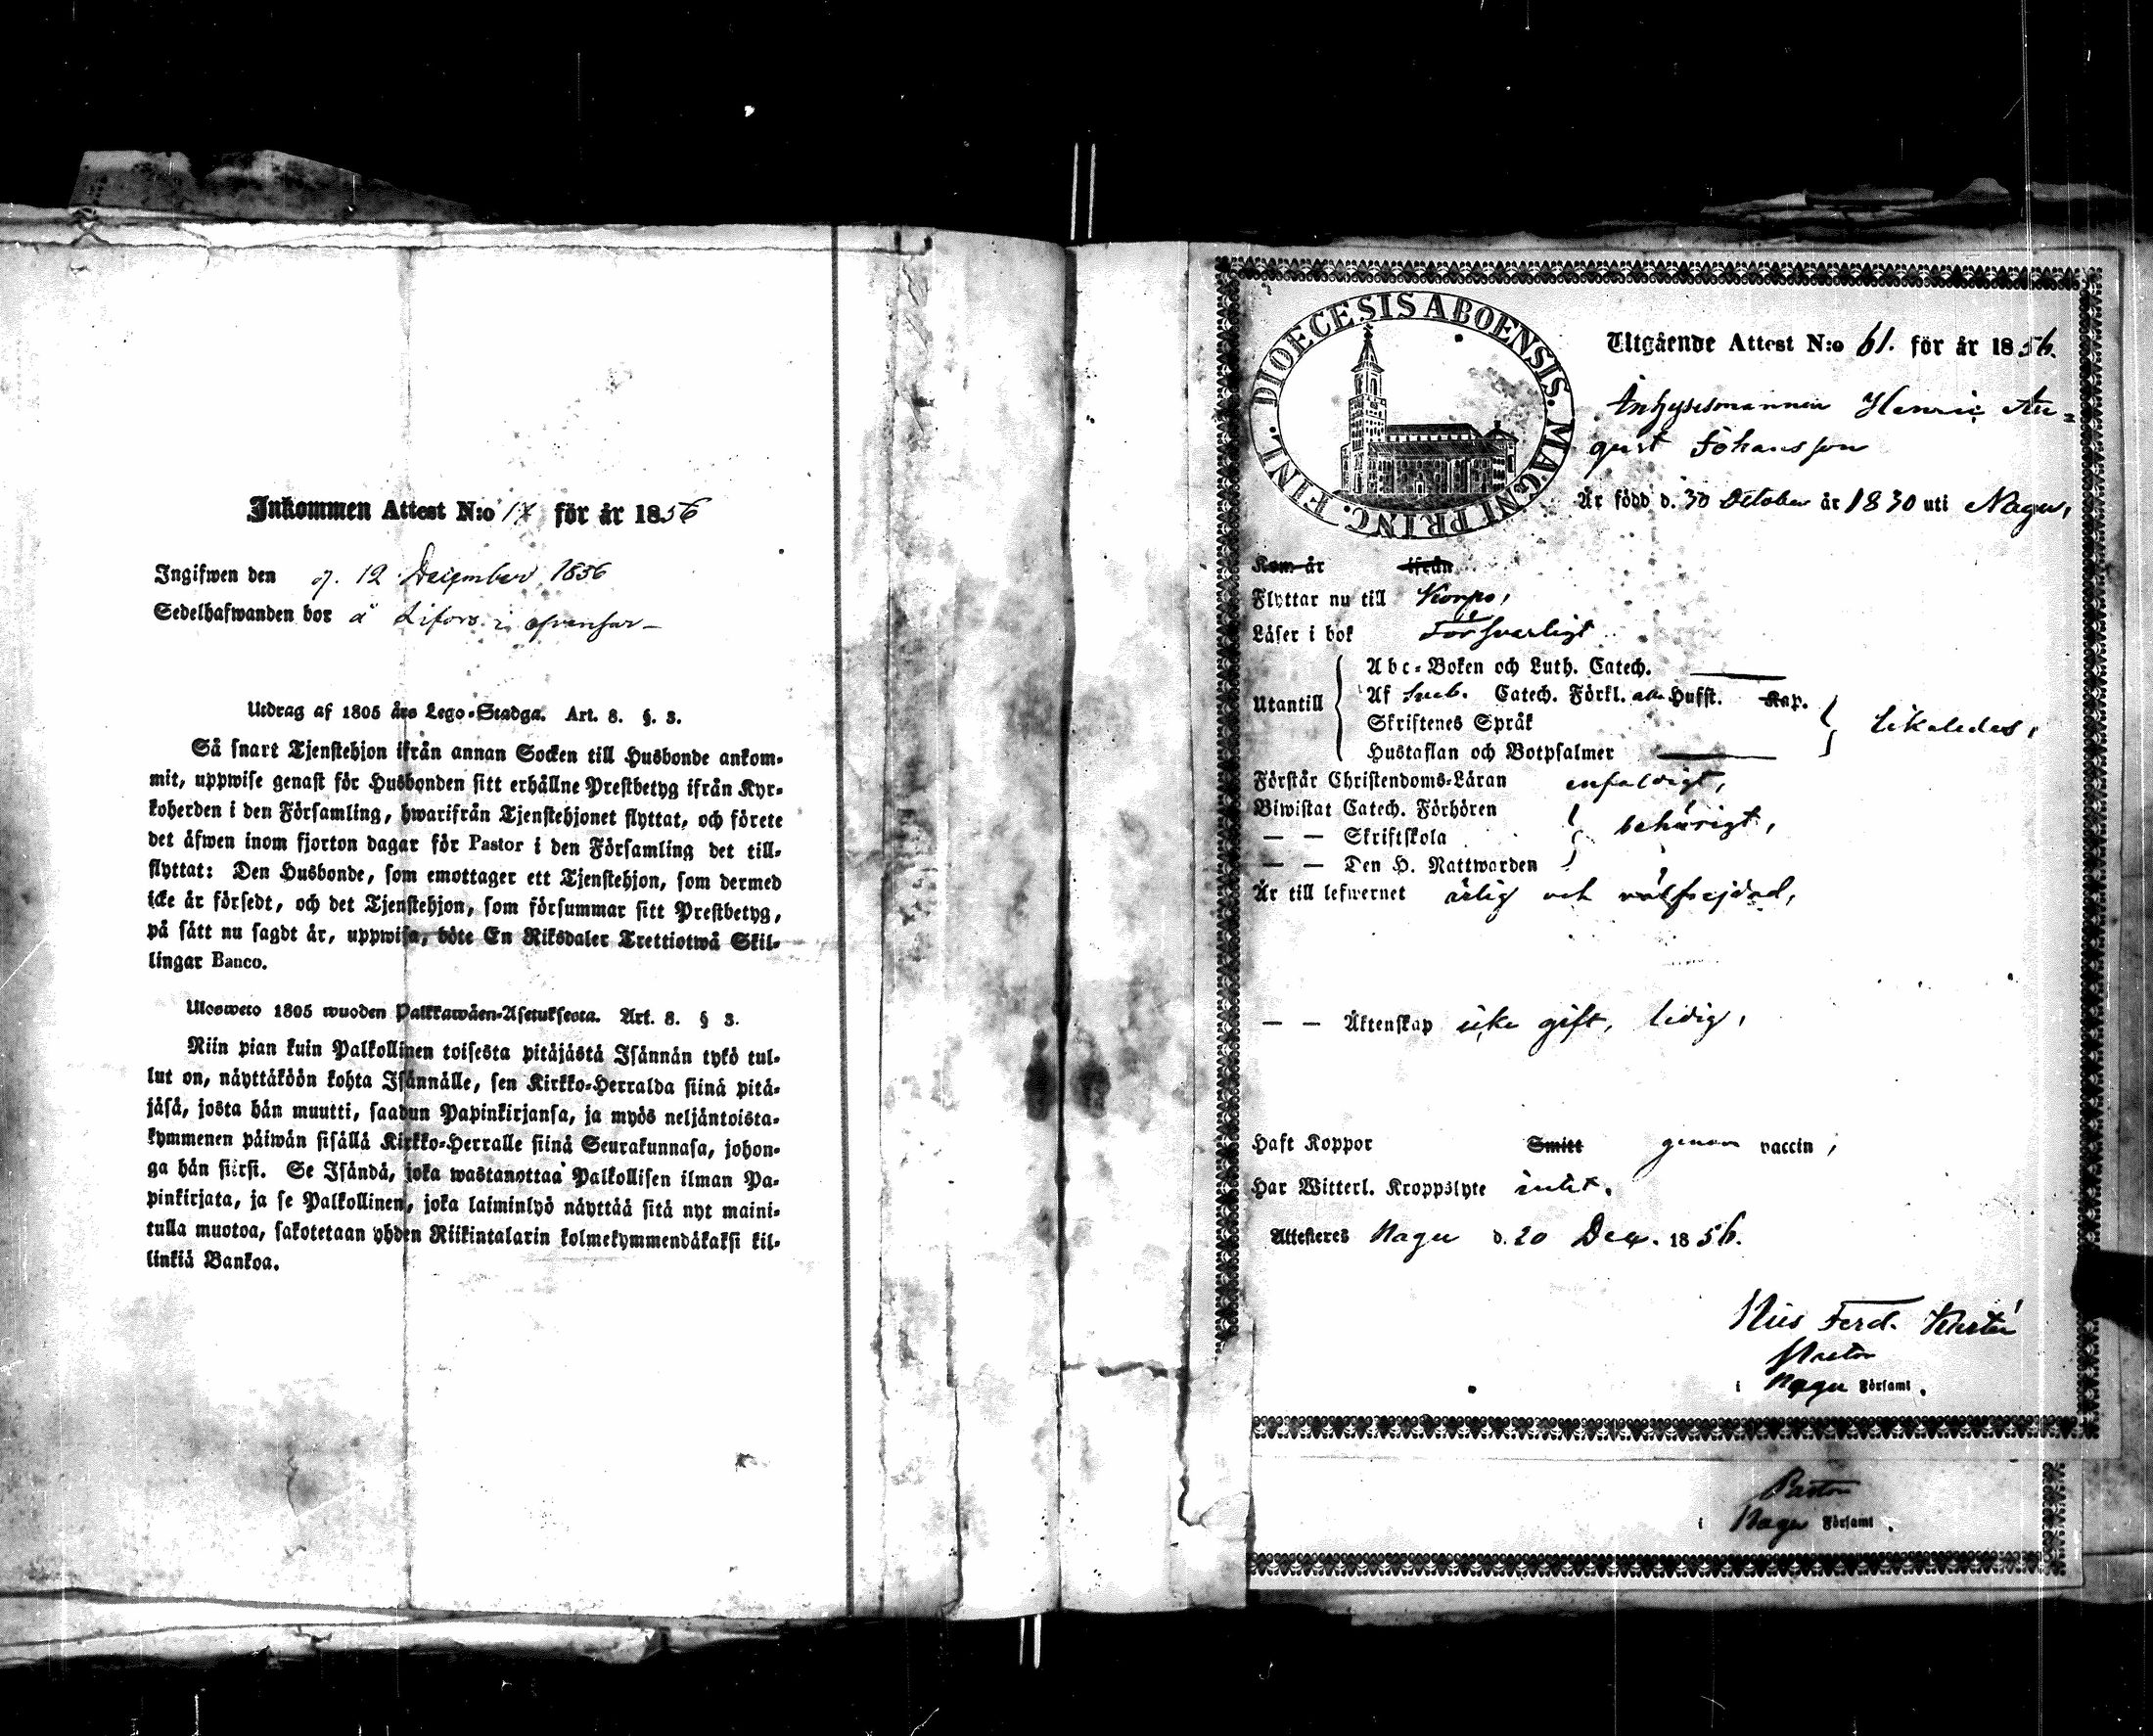 Inkommen Attest N:o för år 1856
Ingifwen den d. 12 December 1856
Sedelhafwanden bor å Lifors i
Utdrag af 1805 års Lego-Stadga. Art. 8. §. 3.
Så snart Tjenstehjon ifrån annan Socken till Husbonde ankom-
mit, uppwise genast för Husbonden sitt erhållne Prestbetyg ifrån Kyr-
koherden i den Församling, hwarifrån Tjenstehjonet flyttat, och förete
det äfwen inom fjorton dagar för Pastor i den Församling det till-
flyttat: Den Husbonde, som emottager ett Tjenstehjon, som dermed
icke är försedt, och det Tjenstehjon, som försummar sitt Prestbetyg,
på sätt nu sagdt är, uppwisa, böte En Riksdaler Trettiotwå Skil-
lingar Banco.
Ulosweto 1805 wuoden Palkkawäen-Asetuksesta. Art. 8. § 3.
Niin pian kuin Palkollinen toisesta pitäjästä Isännän tykö tul-
lut on, näyttäköön kohta Isännälle, sen Kirkko-Herralda siinä pitä-
jäsä, josta hän muutti, saadun Papinkirjansa, ja myös neljäntoista-
kymmenen päiwän sisällä Kirkko-Herralle siinä Seurakunnasa, johon-
ga hän siirsi. Se Isändä, joka wastanottaa Palkollisen ilman Pa-
pinkirjata, ja se Palkollinen, joka laiminlyö näyttää sitä nyt maini-
tulla muotoa, sakotetaan yhden Riikintalarin kolmekymmendäkaksi kil-
linkiä Bankoa.
DIOECESIS ABOENSIS. MAGNI PRINC. FINL.
Utgående Attest N:o 61. för år 1856.
Inhysesmannen Henric Au-
gust Johansson
Är född d. 30 October år 1830 uti Nagu,
Kom år ifrån
Flyttar nu till Korpo,
Läser i bok Försvarligt
Utantill
Abc-Boken och Luth. Catech.
Af Sveb. Catech. Förkl. Hufst. Kap.
Skriftenes Språk
Hustaflan och Botpsalmer
likaledes,
Förstår Christendoms-Läran enfaldigt,
Biwistat Catech. Förhören
— — Skriftskola
behörigt,
— — Den H. Nattwarden
Är till lefwernet ärlig och välfrejdad,
— — Äktenskap icke gift, ledig,
Haft Koppor Smitt genom vaccin,
Har Witterl. Kroppslyte intet.
Attesteres Nagu d. 20 Dec. 1856.
Nils Ferd.
Pastor
i Nagu Församl.
Pastor
i Nagu Församl.